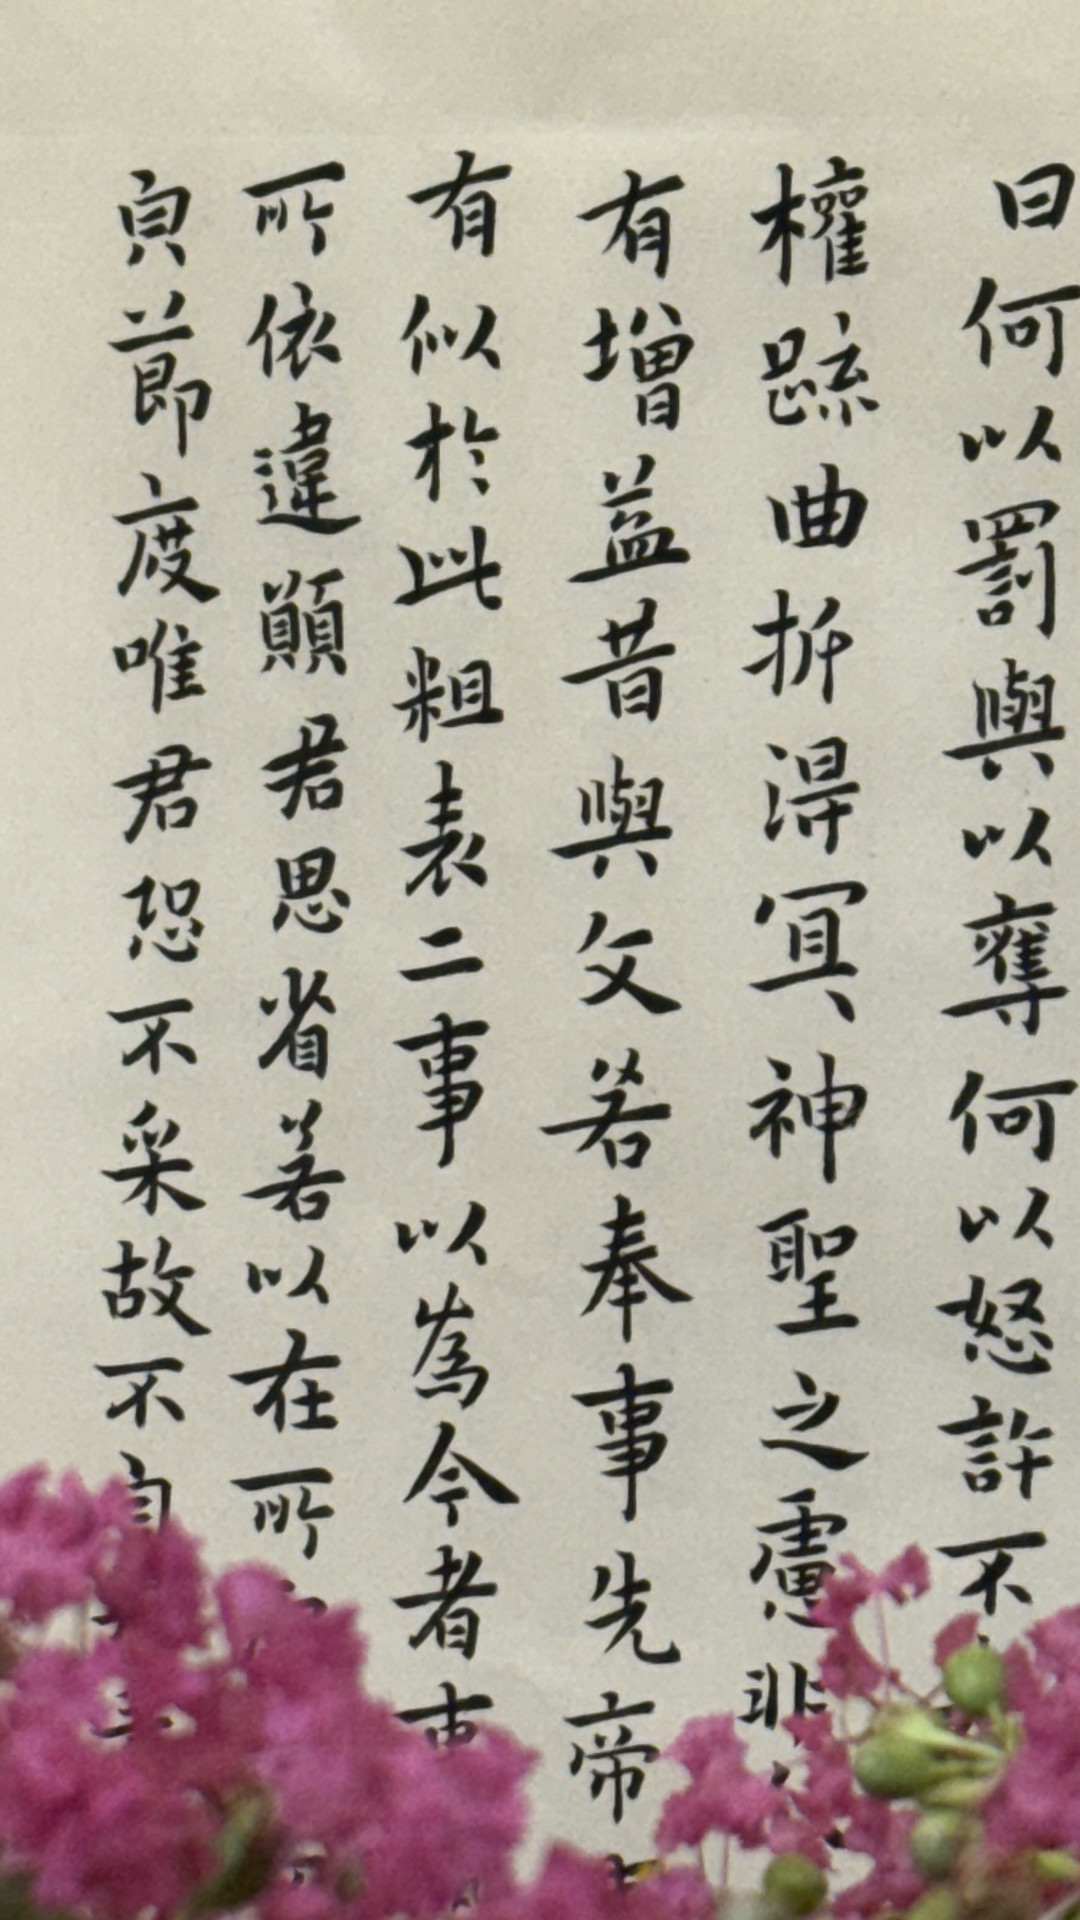 曰何以罰與以奪何以怒許不
權疏曲折得冥神聖之慮非
有增益昔與文若奉事先帝
有似於此粗表二事以為今者事
所依違顛君思省若以在所
貞節度唯君恐不采故不自